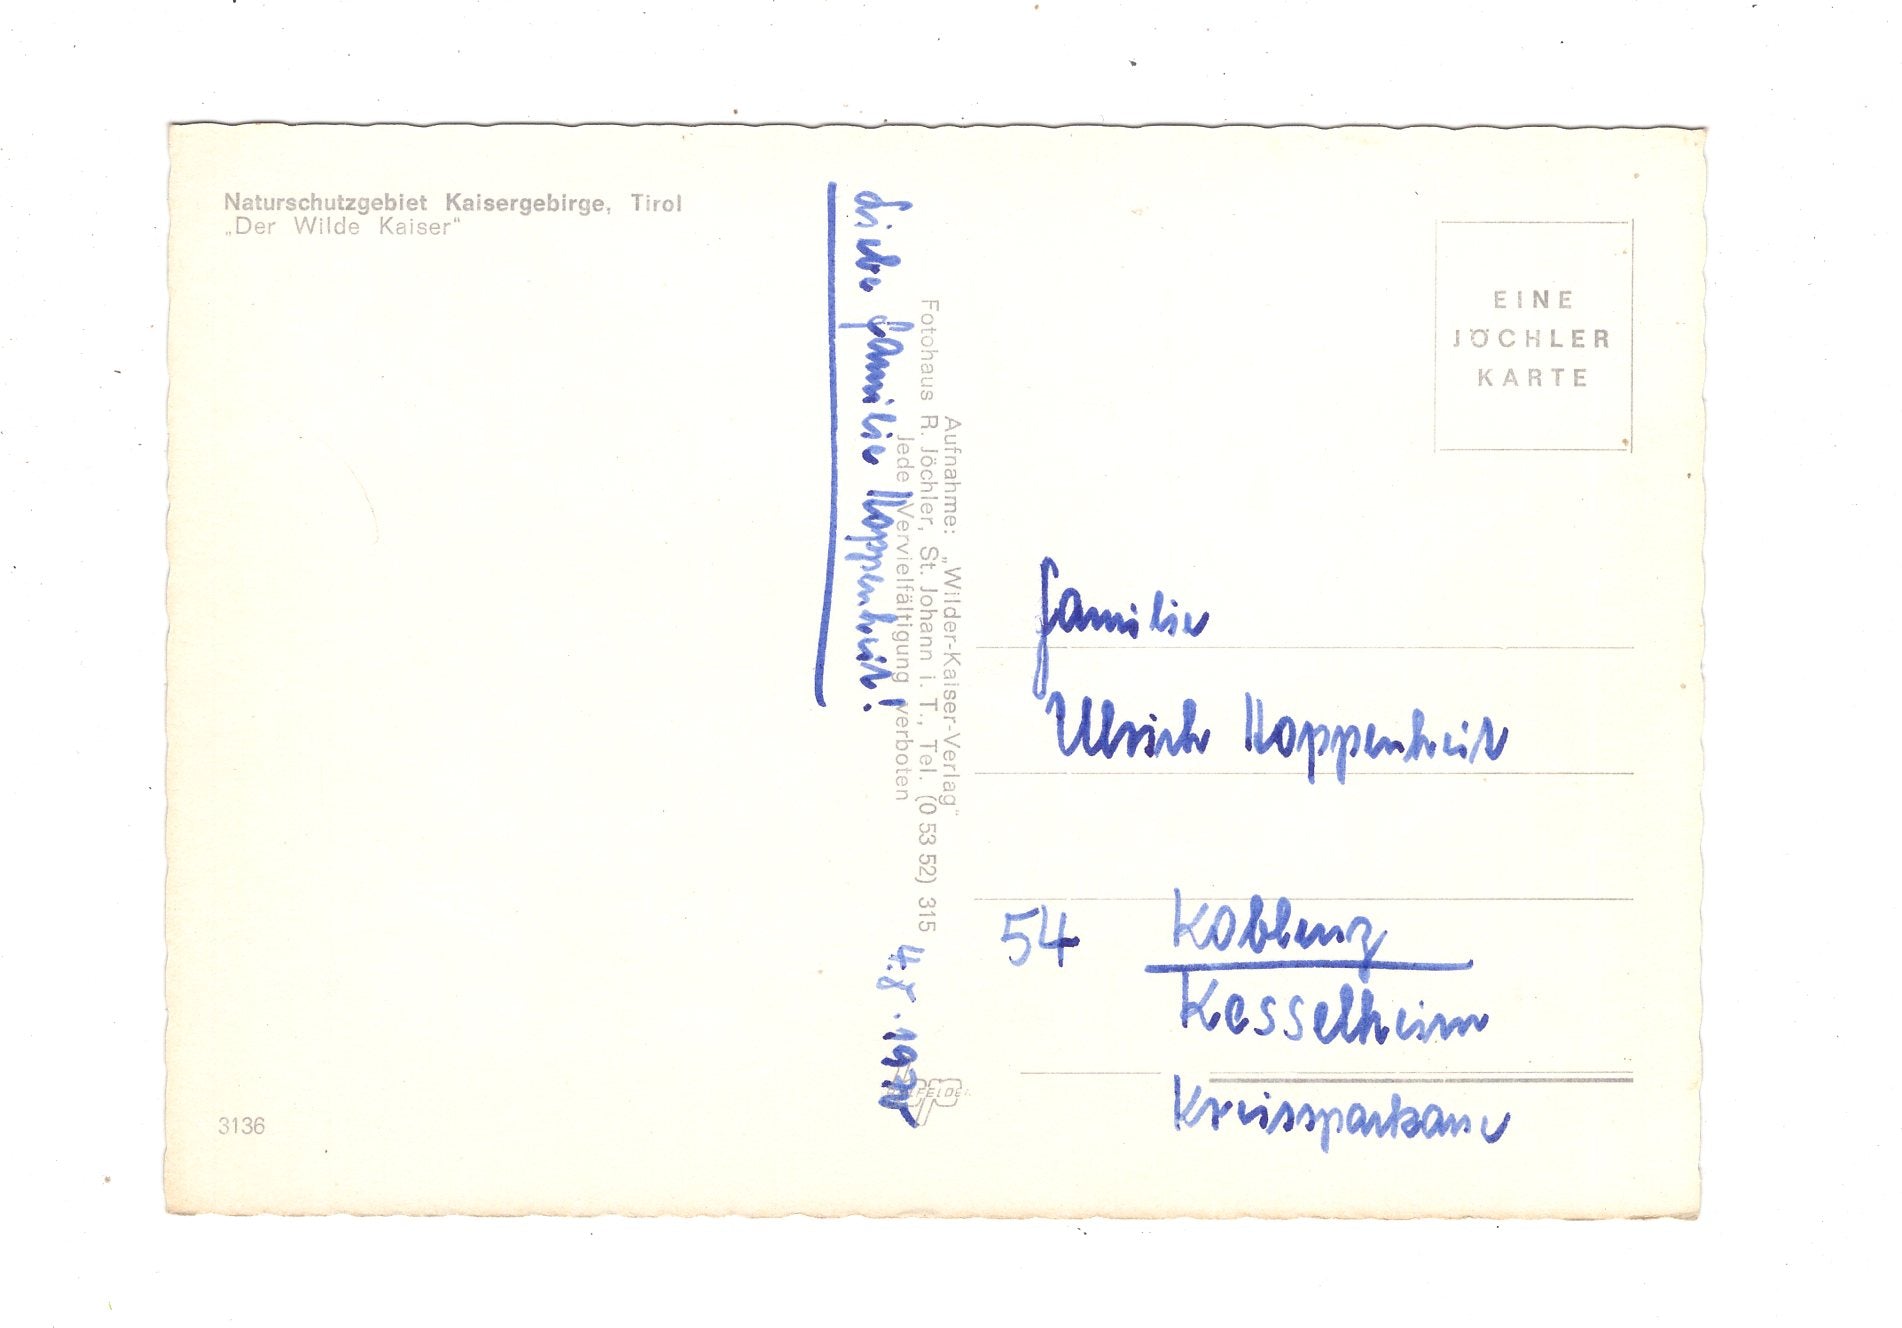 Naturschutzgebiet Kaisergebirge, Tirol
„Der Wilde Kaiser“
3136
Liebe Familie Hoppenheit!
4.8.1972
Aufnahme: „Wilder-Kaiser-Verlag“
Fotohaus R. Jöchler, St. Johann i. T., Tel. (0 53 52) 315
Jede Vervielfältigung verboten
EINE
JÖCHLER
KARTE
Familie
Ulrich Hoppenheit
54 Koblenz
Kesselheim
Kreissparkasse